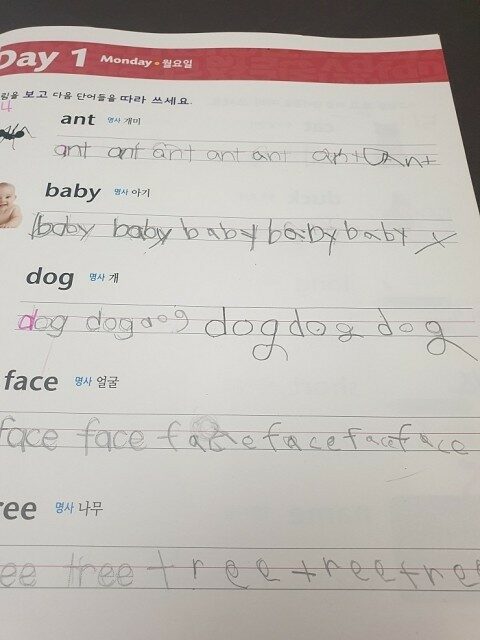 Day 1 Monday • 월요일
림을 보고 다음 단어들을 따라 쓰세요.
4
ant 명사 개미
ant ant ant ant ant ant ant
baby 명사 아기
baby baby baby baby baby y
dog 명사 개
dog dog dog dog dog dog
face 명사 얼굴
face face face face face face
ree 명사 나무
ee tree tree tree tree